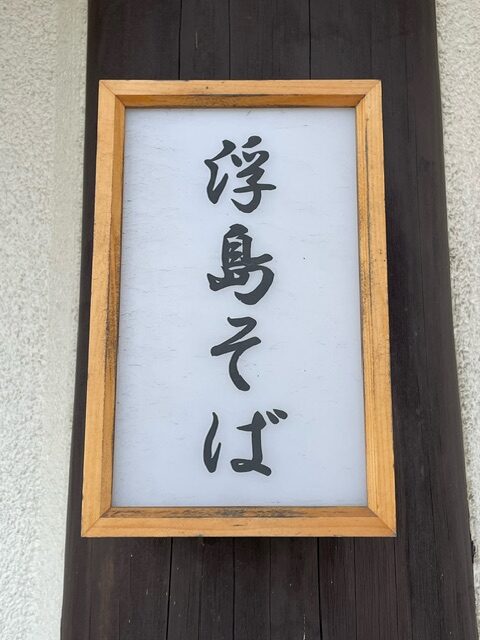 浮島そば